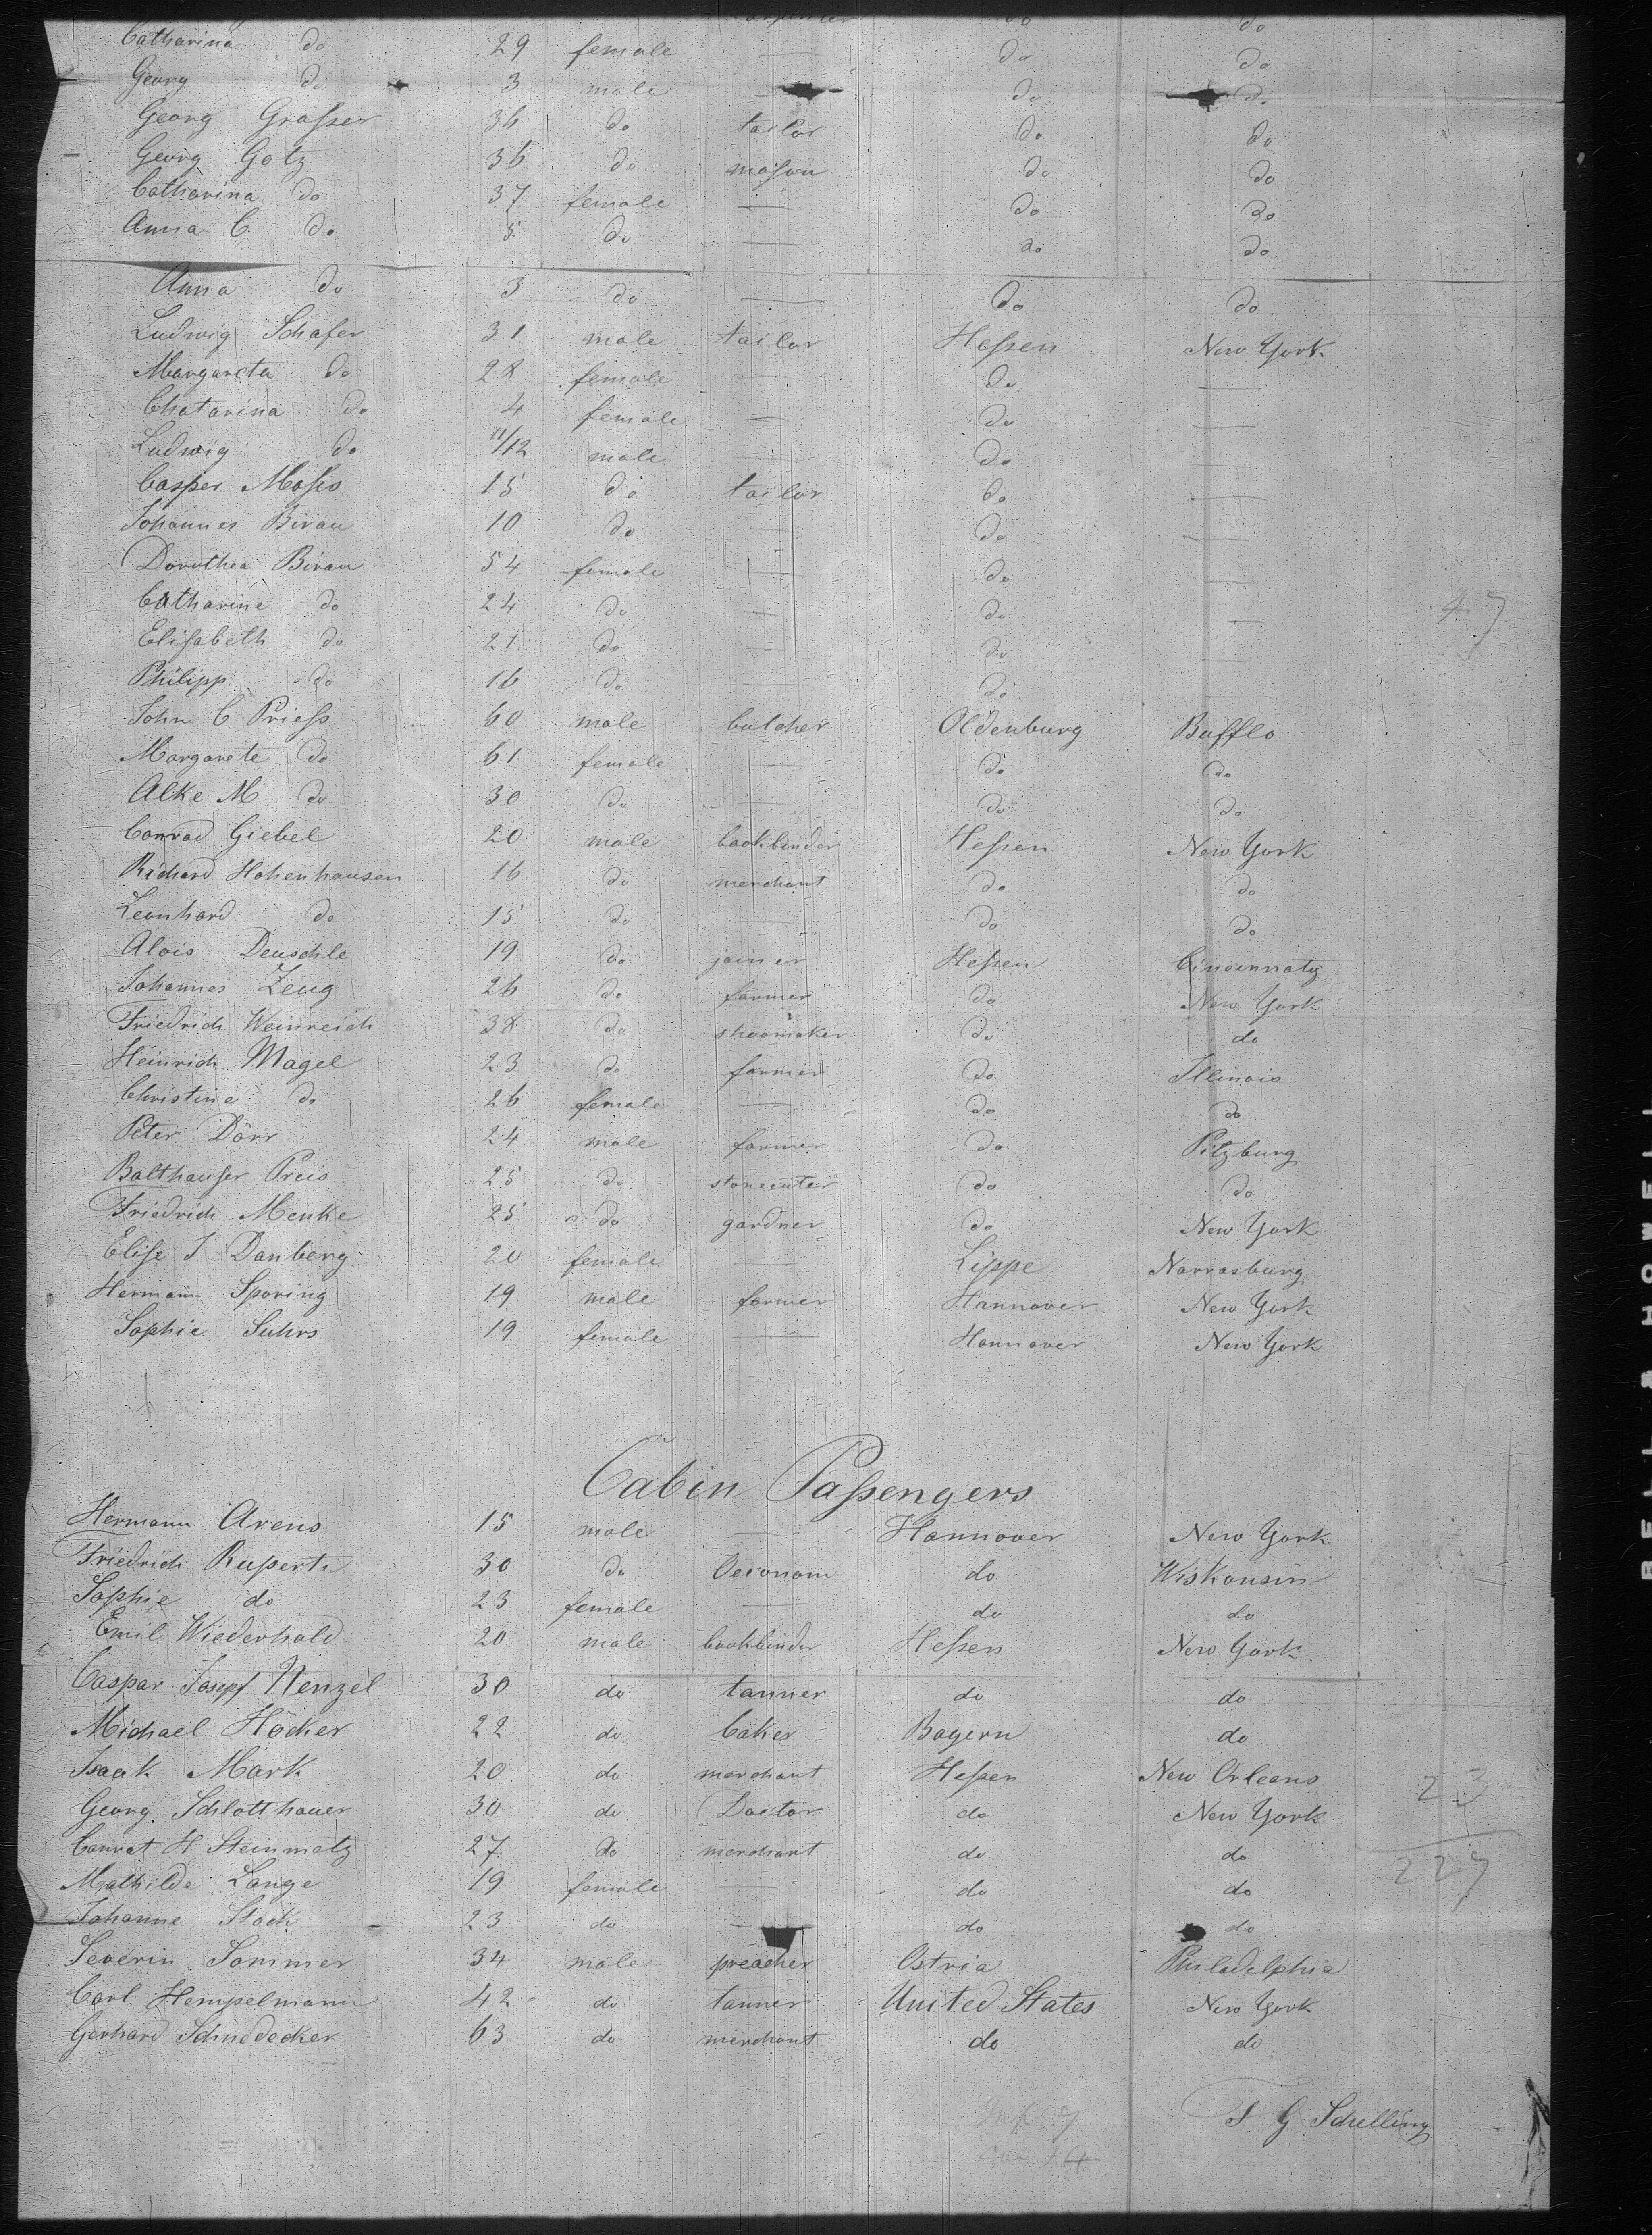 do do
Catharina do 29 female — do do
Georg do 3 male — do do
Georg Graſser 36 do tailor do do
Georg Gotz 36 do maſon do do
Catharina do 37 female — do do
Anna C. do 5 do — do do
Anna do 3 do — do do
Ludwig Schafer 31 male tailor Heſsen New York
Margareta do 28 female — do —
Chatarina do 4 female — do —
Ludwig do 11/12 male — do —
Casper 15 do tailor do —
Johannes Birau 10 do — do —
Dorothea Birau 54 female — do —
Catharine do 24 do — do —
47
Eliſabeth do 21 do — do —
Philipp do 16 do — do —
John C Prieſs 60 male butcher Oldenburg Bufflo
Margarete do 61 female — do do
Alke M do 30 do — do do
Conrad Giebel 20 male bookbinder Heſsen New York
Richard Hohenhausen 16 do merchant do do
Leonhard do 15 do — do do
Alois Deuschle 19 do joiner Heſsen Cincinnaty
Johannes Zeug 26 do farmer do New York
Friedrich Weinreich 38 do shoomaker do do
Heinrich Magel 23 do farmer do Illinois
Christine do 26 female — do do
Peter Dörr 24 male farmer do Pitzburg
Balthauſer Preis 25 do stonecuter do do
Friedrich Menke 25 do gardner do New York
Eliſe J Danberg 20 female — Lippe Narrasburg
Hermann Sporing 19 male farmer Hannover New York
Sophie Suhrs 19 female — Hannover New York
Cabin Paſsengers
Hermann Arens 15 male — Hannover New York
Friedrich Ruperti 30 do Oeconom do Wiskonsin
Sophie do 23 female — do do
Emil Wiederhold 20 male bookbinder Heſsen New York
Caspar Josepf Wenzel 30 do tanner do do
Michael Höcker 22 do baker Bayern do
Isaak Mark 20 do merchant Heſsen New Orleans
23
Georg Schlotthauer 30 do Doctor do New York
Conrat H Steinmetz 27 do merchant do do
227
Mathilde Lange 19 female — do do
Johanne Stock 23 do — do do
Severin Sommer 34 male preacher Ostria Philadelphia
Carl Hempelmann 42 do tanner United States New York
Gerhard Schnedecker 63 do merchant do do
J G Schelling
BELL & HOWELL